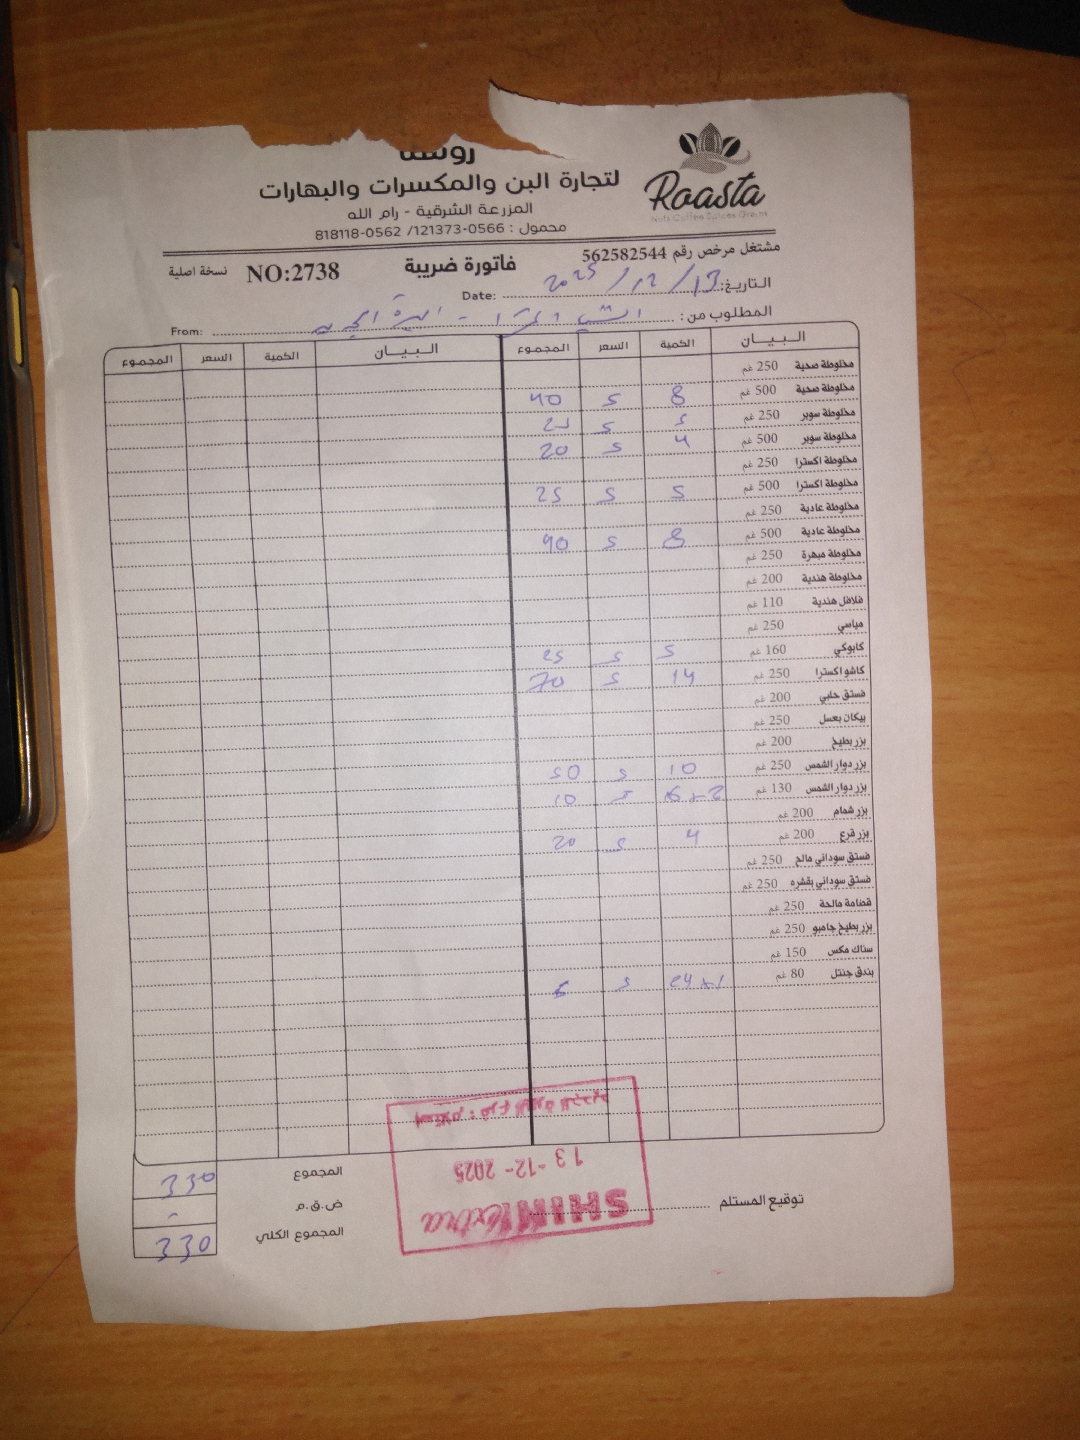 Roasta
Nuts Coffee Spices Grains
لتجارة البن والمكسرات والبهارات
المزرعة الشرقية - رام الله
محمول : 0566-121373/ 0562-818118
مشتغل مرخص رقم 562582544
فاتورة ضريبة
NO:2738
نسخة اصلية
التاريخ: 13/12/2025 Date:
المطلوب من: From:
البيان الكمية السعر المجموع البيان الكمية السعر المجموع
مخلوطة صحية 250 غم
مخلوطة صحية 500 غم 8 5 40
مخلوطة سوبر 250 غم 5 5 25
مخلوطة سوبر 500 غم 4 5 20
مخلوطة اكسترا 250 غم
مخلوطة اكسترا 500 غم 5 5 25
مخلوطة عادية 250 غم
مخلوطة عادية 500 غم 8 5 40
مخلوطة مبهرة 250 غم
مخلوطة هندية 200 غم
فلافل هندية 110 غم
مياسي 250 غم
كابوكي 160 غم 5 5 25
كاشو اكسترا 250 غم 14 5 70
فستق حلبي 200 غم
بيكان بعسل 250 غم
بزر بطيخ 200 غم
بزر دوار الشمس 250 غم 10 5 50
بزر دوار الشمس 130 غم 5 10
بزر شمام 200 غم
بزر قرع 200 غم 4 5 20
فستق سوداني مالح 250 غم
فستق سوداني بقشره 250 غم
قضامة مالحة 250 غم
بزر بطيخ جامبو 250 غم
سناك مكس 150 غم
بندق جنتل 80 غم 24x1 5
المجموع 330
ض.ق.م -
المجموع الكلي 330
توقيع المستلم
SHINI extra
13-12-2025
استلام : فرع البيرة الجديد